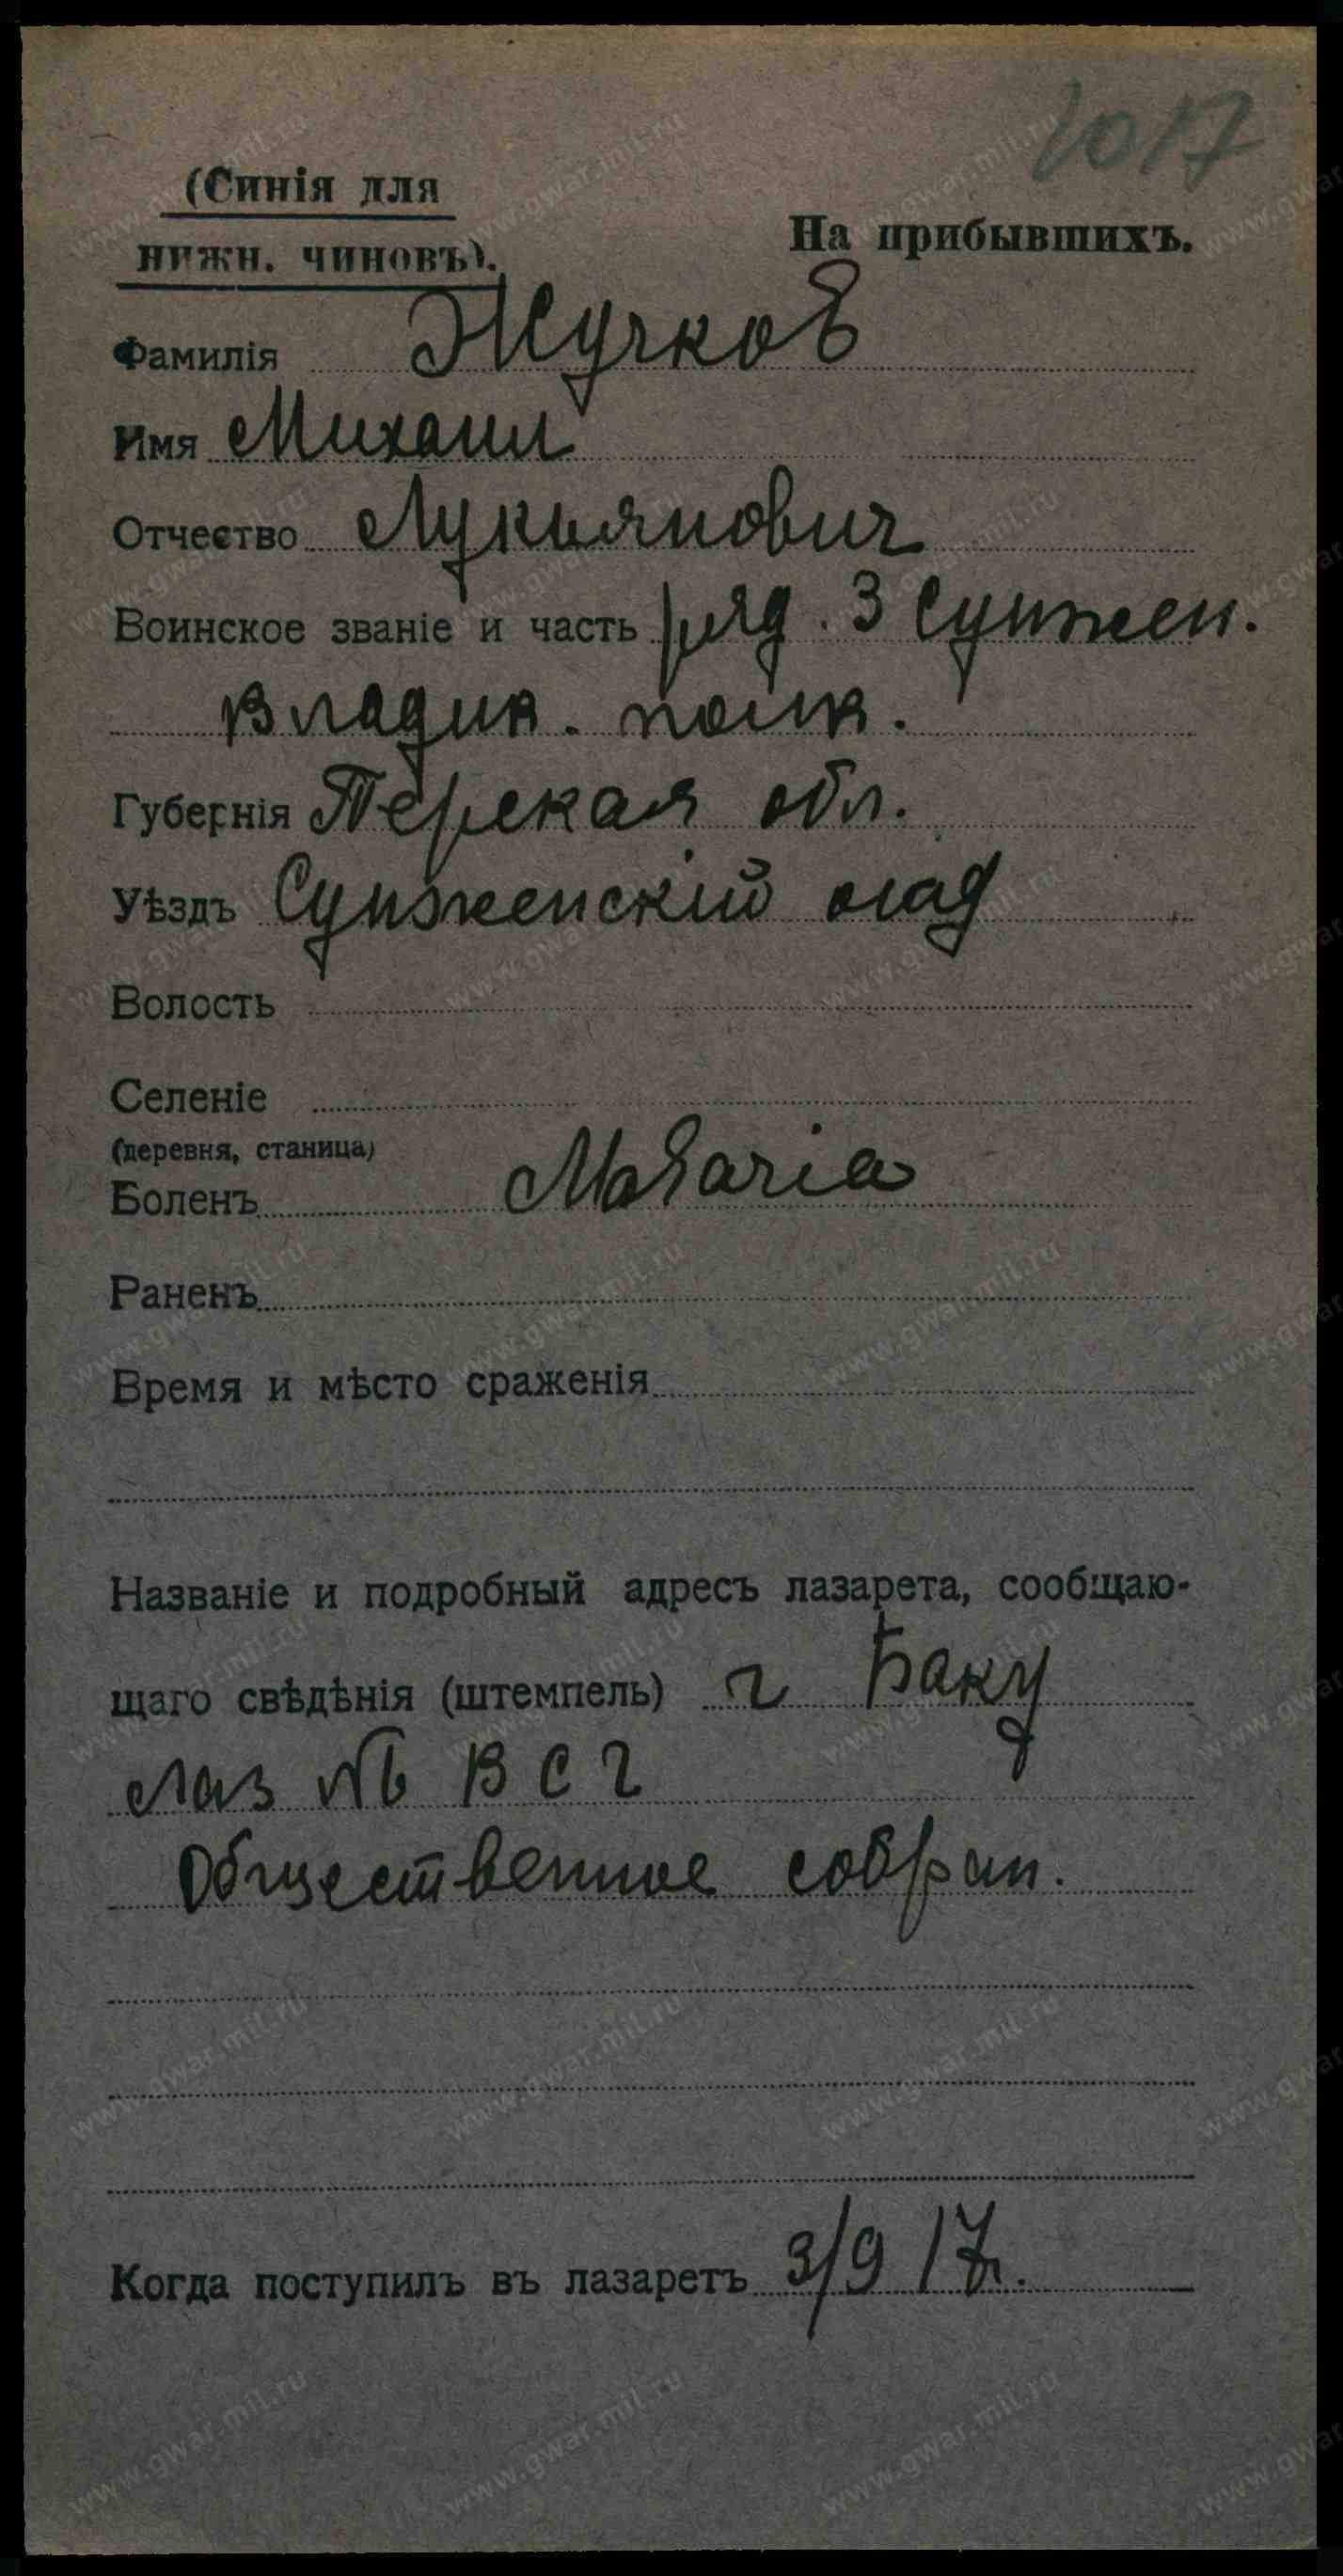 1017
(Синія для
нижн. чиновъ).
На прибывшихъ.
Фамилія Жучков
Имя Михаил
Отчество Лукьянович
Воинское званіе и часть ряд. 3 Сунжен.
Владик. полк.
Губернія Терская обл.
Уѣздъ Сунженскій
Волость
Селеніе
(деревня, станица)
Боленъ
Раненъ
Время и мѣсто сраженія
Названіе и подробный адресъ лазарета, сообщаю-
щаго свѣдѣнія (штемпель) г Баку
Лаз № В С Г
Общественное собран.
Когда поступилъ въ лазаретъ 3/9 17г.